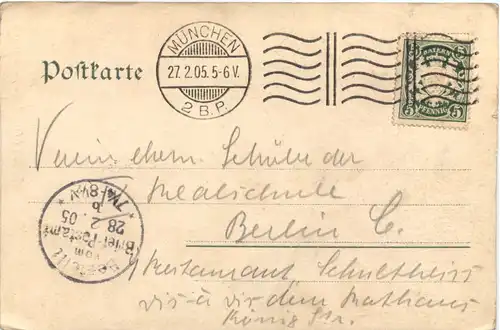 Postkarte
MÜNCHEN
27.2.05.5-6V.
2 B.P.
BAYERN
5 5
PFENNIG
Verein ehem. Schüler der
Realschule
Berlin C.
Restaurant Schultheiss
vis-à vis dem Rathaus
König Str.
Bestellt
vom
Brief-Postamt
28/2.05
7¼-8½V.